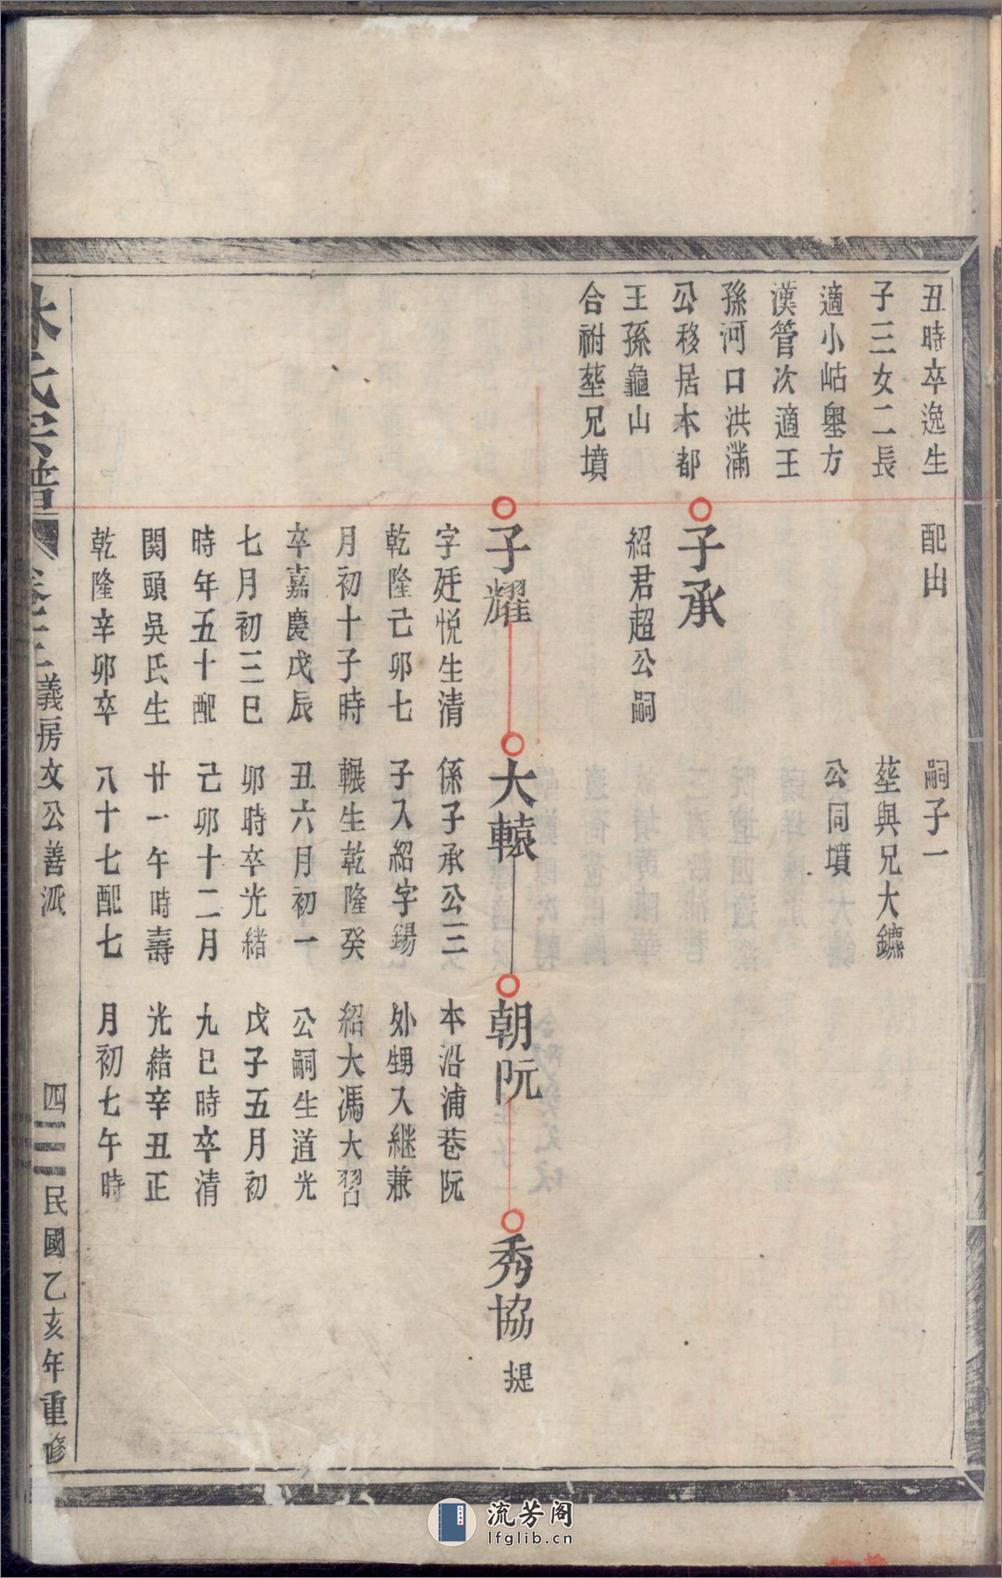 丑時卒逸生
子三女二長
適小岵壆方
漢管次適王
孫河口洪滿
公移居本都
王孫龜山
合祔塟兄墳
配由
子承
紹君超公嗣
子耀
字廷悦生清
乾隆己卯七
月初十子時
卒嘉慶戊辰
七月初三巳
時年五十配
関頭吳氏生
乾隆辛卯卒
嗣子一
塟與兄大鑣
公同墳
大轅
係子承公三
子入紹字錫
輾生乾隆癸
丑六月初一
卯時卒光緒
己卯十二月
廿一午時壽
八十七配七
朝阮
本沿浦巷阮
外甥入継兼
紹大馮大習
公嗣生道光
戊子五月初
九巳時卒清
光緒辛丑正
月初七午時
秀協
提
林氏宗譜
義房文公善派
四三二
民國乙亥年重修
流芳阁
lfglib.cn